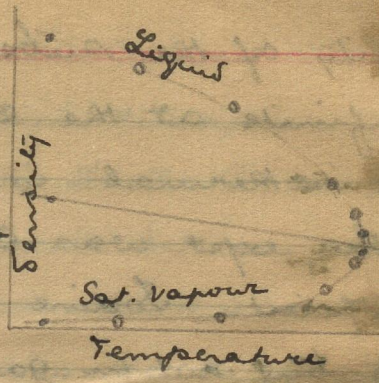 Liquid
Density
Sat. Vapour
Temperature